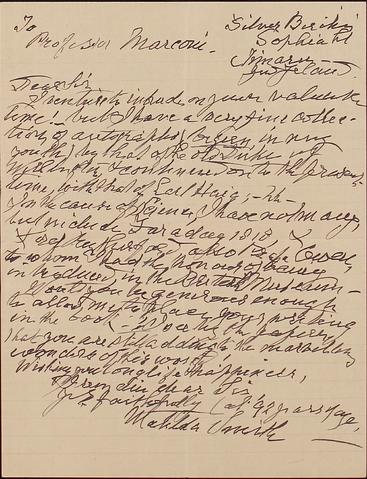 To
Professor Marconi.
Silver Birches
Sophia St
Timaru
Dear Sir
I venture to intrude on your valuable
time! but I have a very fine collec-
tion of autographs begun in my
youth, by that of the old Duke of
Wellington & continued on to the present
time, with that of Earl Haig;
in the cause of Science I have not many,
but include Faraday 1818,
also Owen,
to whom I had the honour of being
introduced, in the British Museum
Would you be generous enough
to allow me to place your writing
in the book - I see by the papers
that you are still adding to the marvellous
wonders of this world!
Wishing you long life & happiness,
I remain dear Sir
Yrs faithfully (at 92 years of age,
Matilda Smith